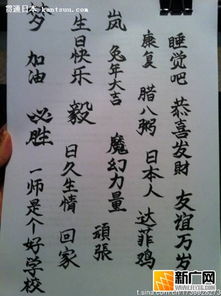 贯通日本 kantsun.com
梦 加油 必胜 一师是个好学校
生日快乐 毅 日久生情 回家
岚 兔年大吉 魔幻力量 頑張
康复 腊八粥 日本人 达菲鸡
睡觉吧 恭喜发财 友谊万岁
新广网